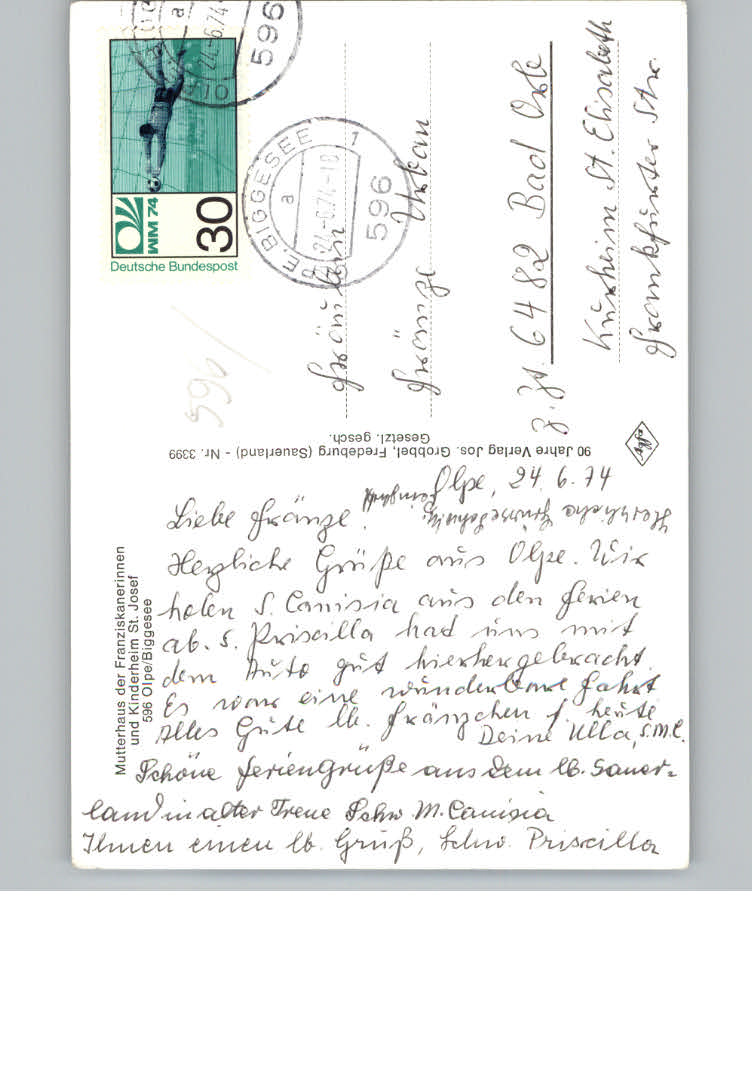 Mutterhaus der Franziskanerinnen
und Kinderheim St. Josef
596 Olpe/Biggesee
Olpe, 24. 6. 74
Liebe Fränze!
Herzliche Grüße aus Olpe. Wir
holen S. Canisia aus den Ferien
ab. S. Priscilla hat uns mit
dem Auto gut hierhergebracht.
Es war eine wunderbare Fahrt
Alles Gute lb. Fränzchen f. heute
Deine Ulla, S.M.C.
Schöne Feriengrüße aus dem lb. Sauer-
land in alter Treue Schw. M. Canisia
Ihnen einen lb. Gruß, Schw. Priscilla
Herzliche Grüße
90 Jahre Verlag Jos. Grobbel, Fredeburg (Sauerland) - Nr. 3399
Gesetzl. gesch.
afks
596
WM 74
30
Deutsche Bundespost
BIGGESEE 1
a
24.-6.74-18
596
a
24.-6.74
596
Fräulein
Fränze Urban
z. Zt. 6482 Bad Orb
Kurheim St. Elisabeth
Frankfurter Str.